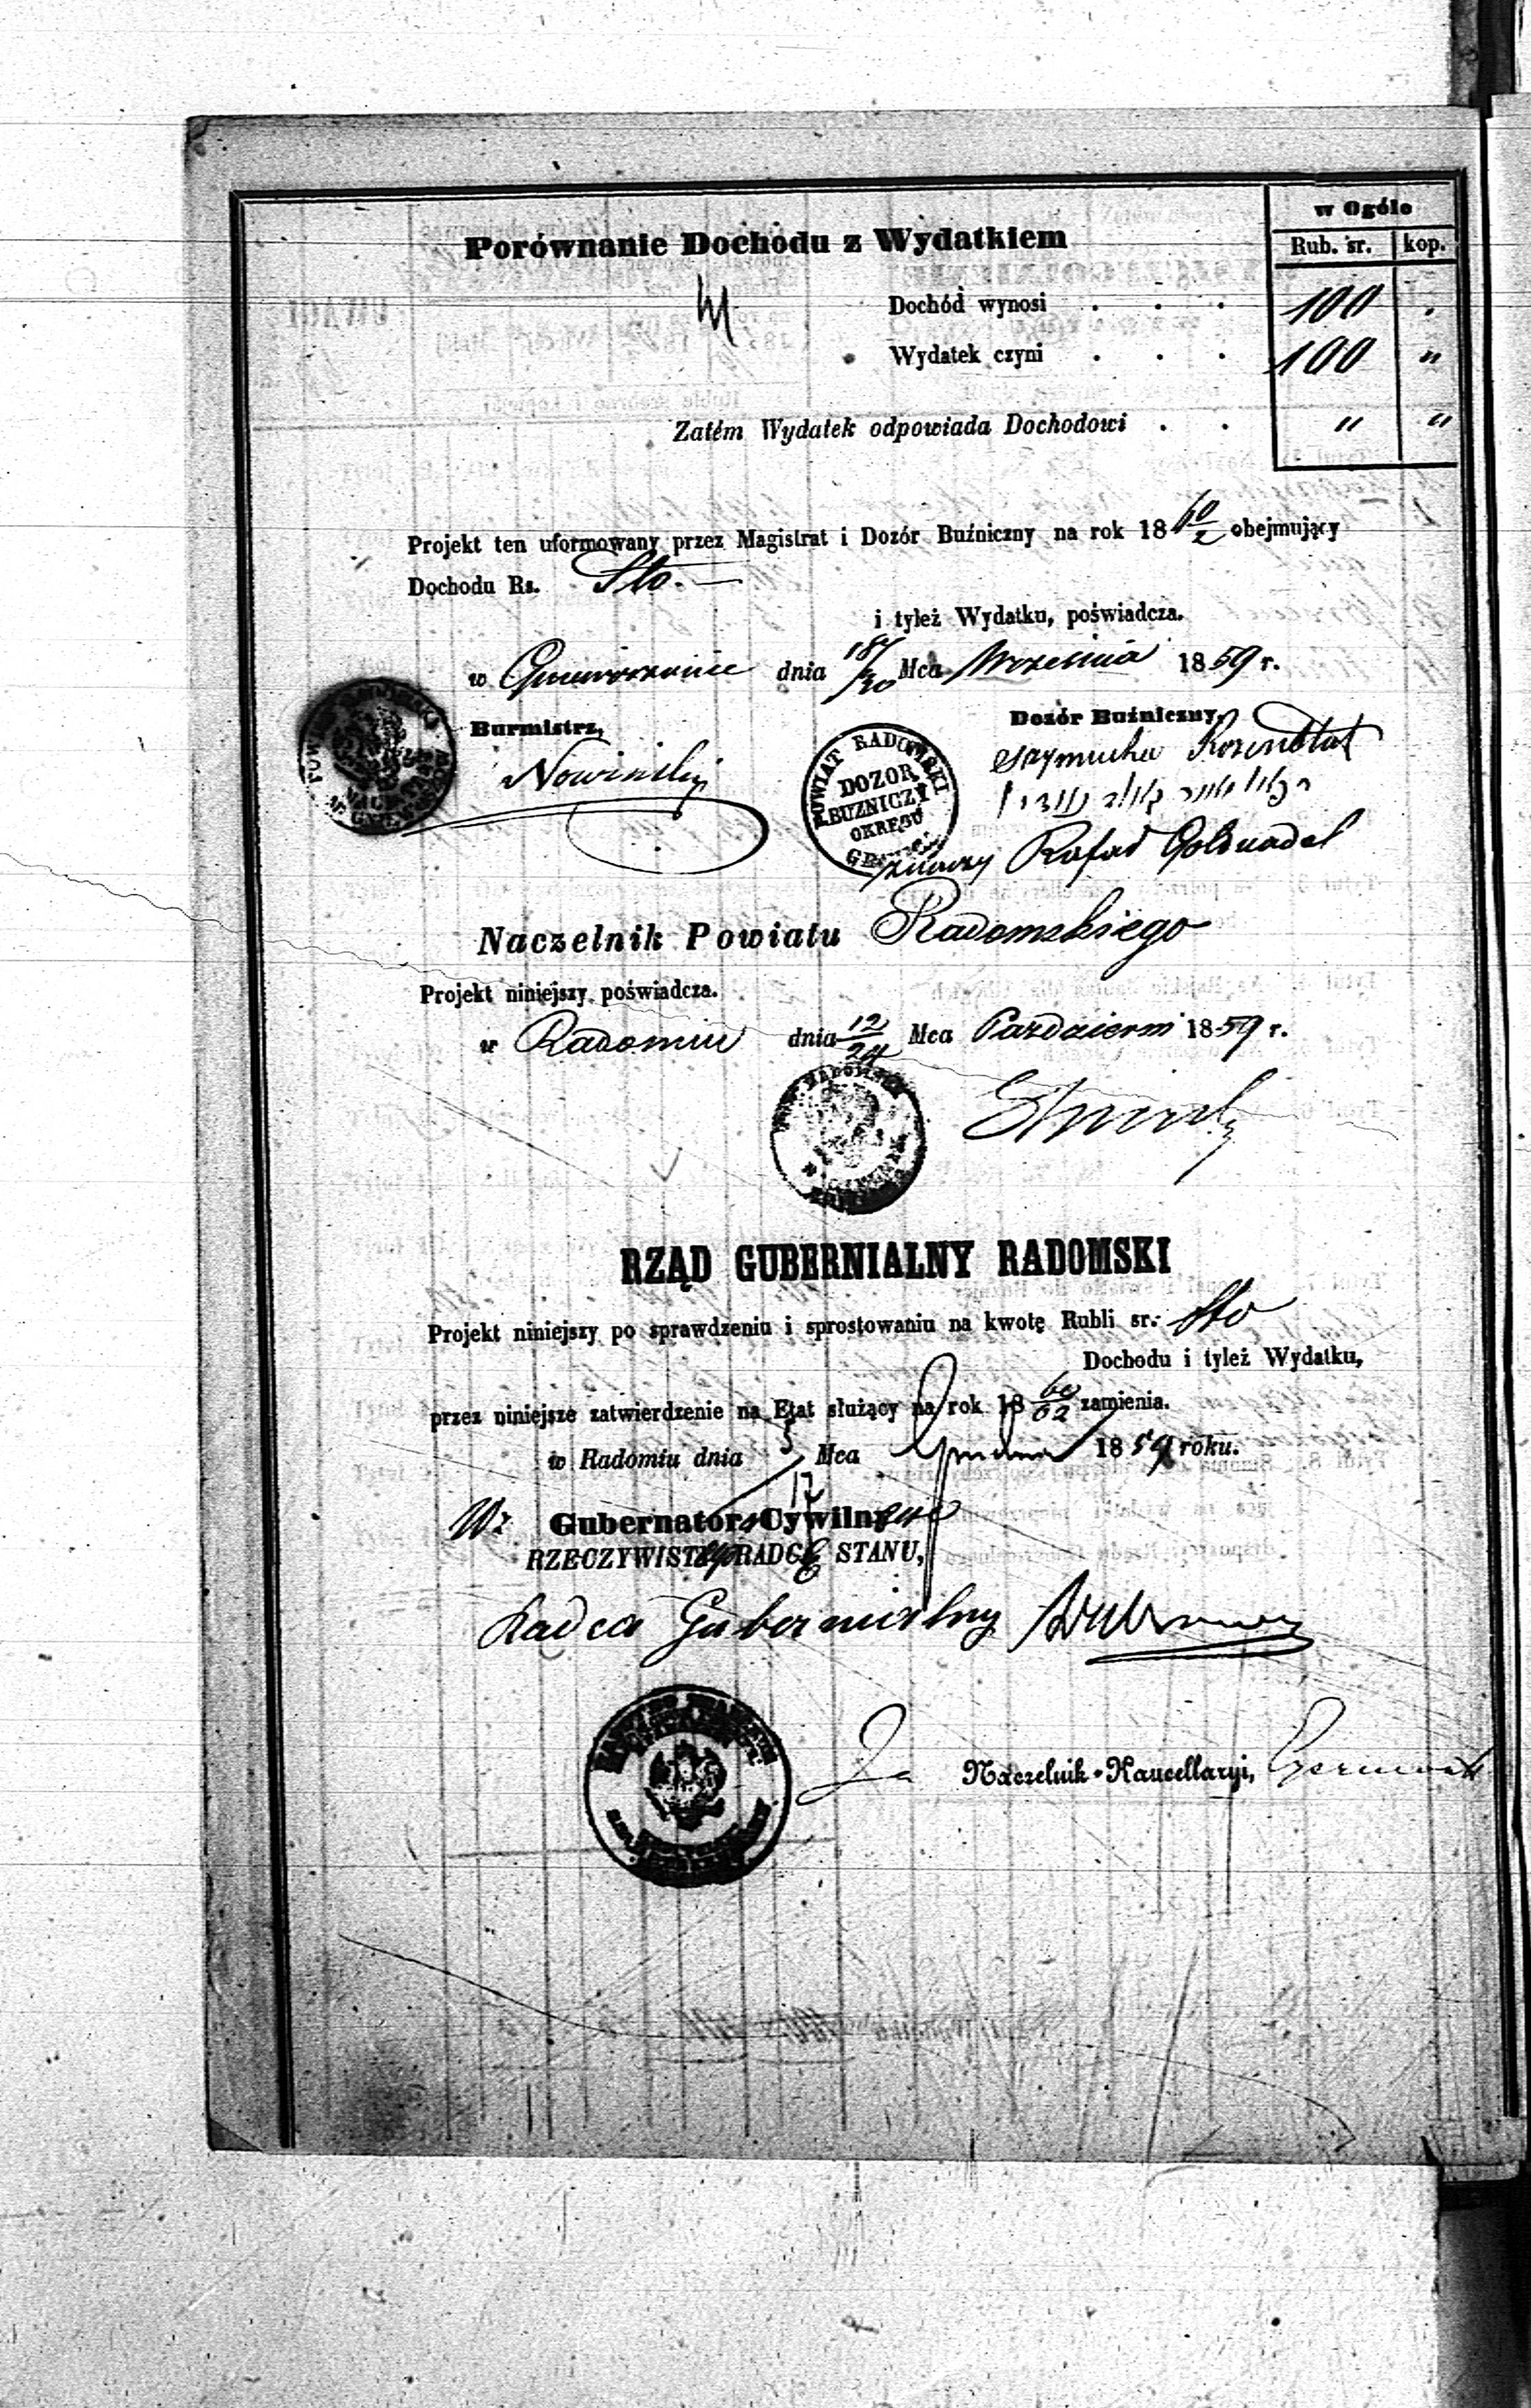 w Ogóle
Porównanie Dochodu z Wydatkiem
Rub. sr. kop.
Dochód wynosi . . . 100 "
Wydatek czyni . . . 100 "
Zatém Wydatek odpowiada Dochodowi . . " "
Projekt ten uformowany przez Magistrat i Dozór Buźniczny na rok 18 60/2 obejmujący
Dochodu Rs. Sto. —
i tyleż Wydatku, poświadcza.
w dnia 18/30 Mca Września 1859 r.
Burmistrz, Dozór Buźniczny
Nowiński
Szymucha Rozenblat
POWIAT RADOMSKI
DOZOR
BUZNICZY
OKRĘGU
Rafał Goldnadel
Naczelnik Powiatu Radomskiego
Projekt niniejszy poświadcza.
w Radomiu dnia 12/24 Mca Październi 1859 r.
RZĄD GUBERNIALNY RADOMSKI
Projekt niniejszy po sprawdzeniu i sprostowaniu na kwotę Rubli sr. Sto
Dochodu i tyleż Wydatku,
przez niniejsze zatwierdzenie na Etat służący na rok 18 60/62 zamienia.
w Radomiu dnia 5/17 Mca Grudnia 1859 roku.
Wz Gubernatora Cywilnego
RZECZYWISTY RADCA STANU,
Radca Gubernialny
Za Naczelnik Kancellaryi,